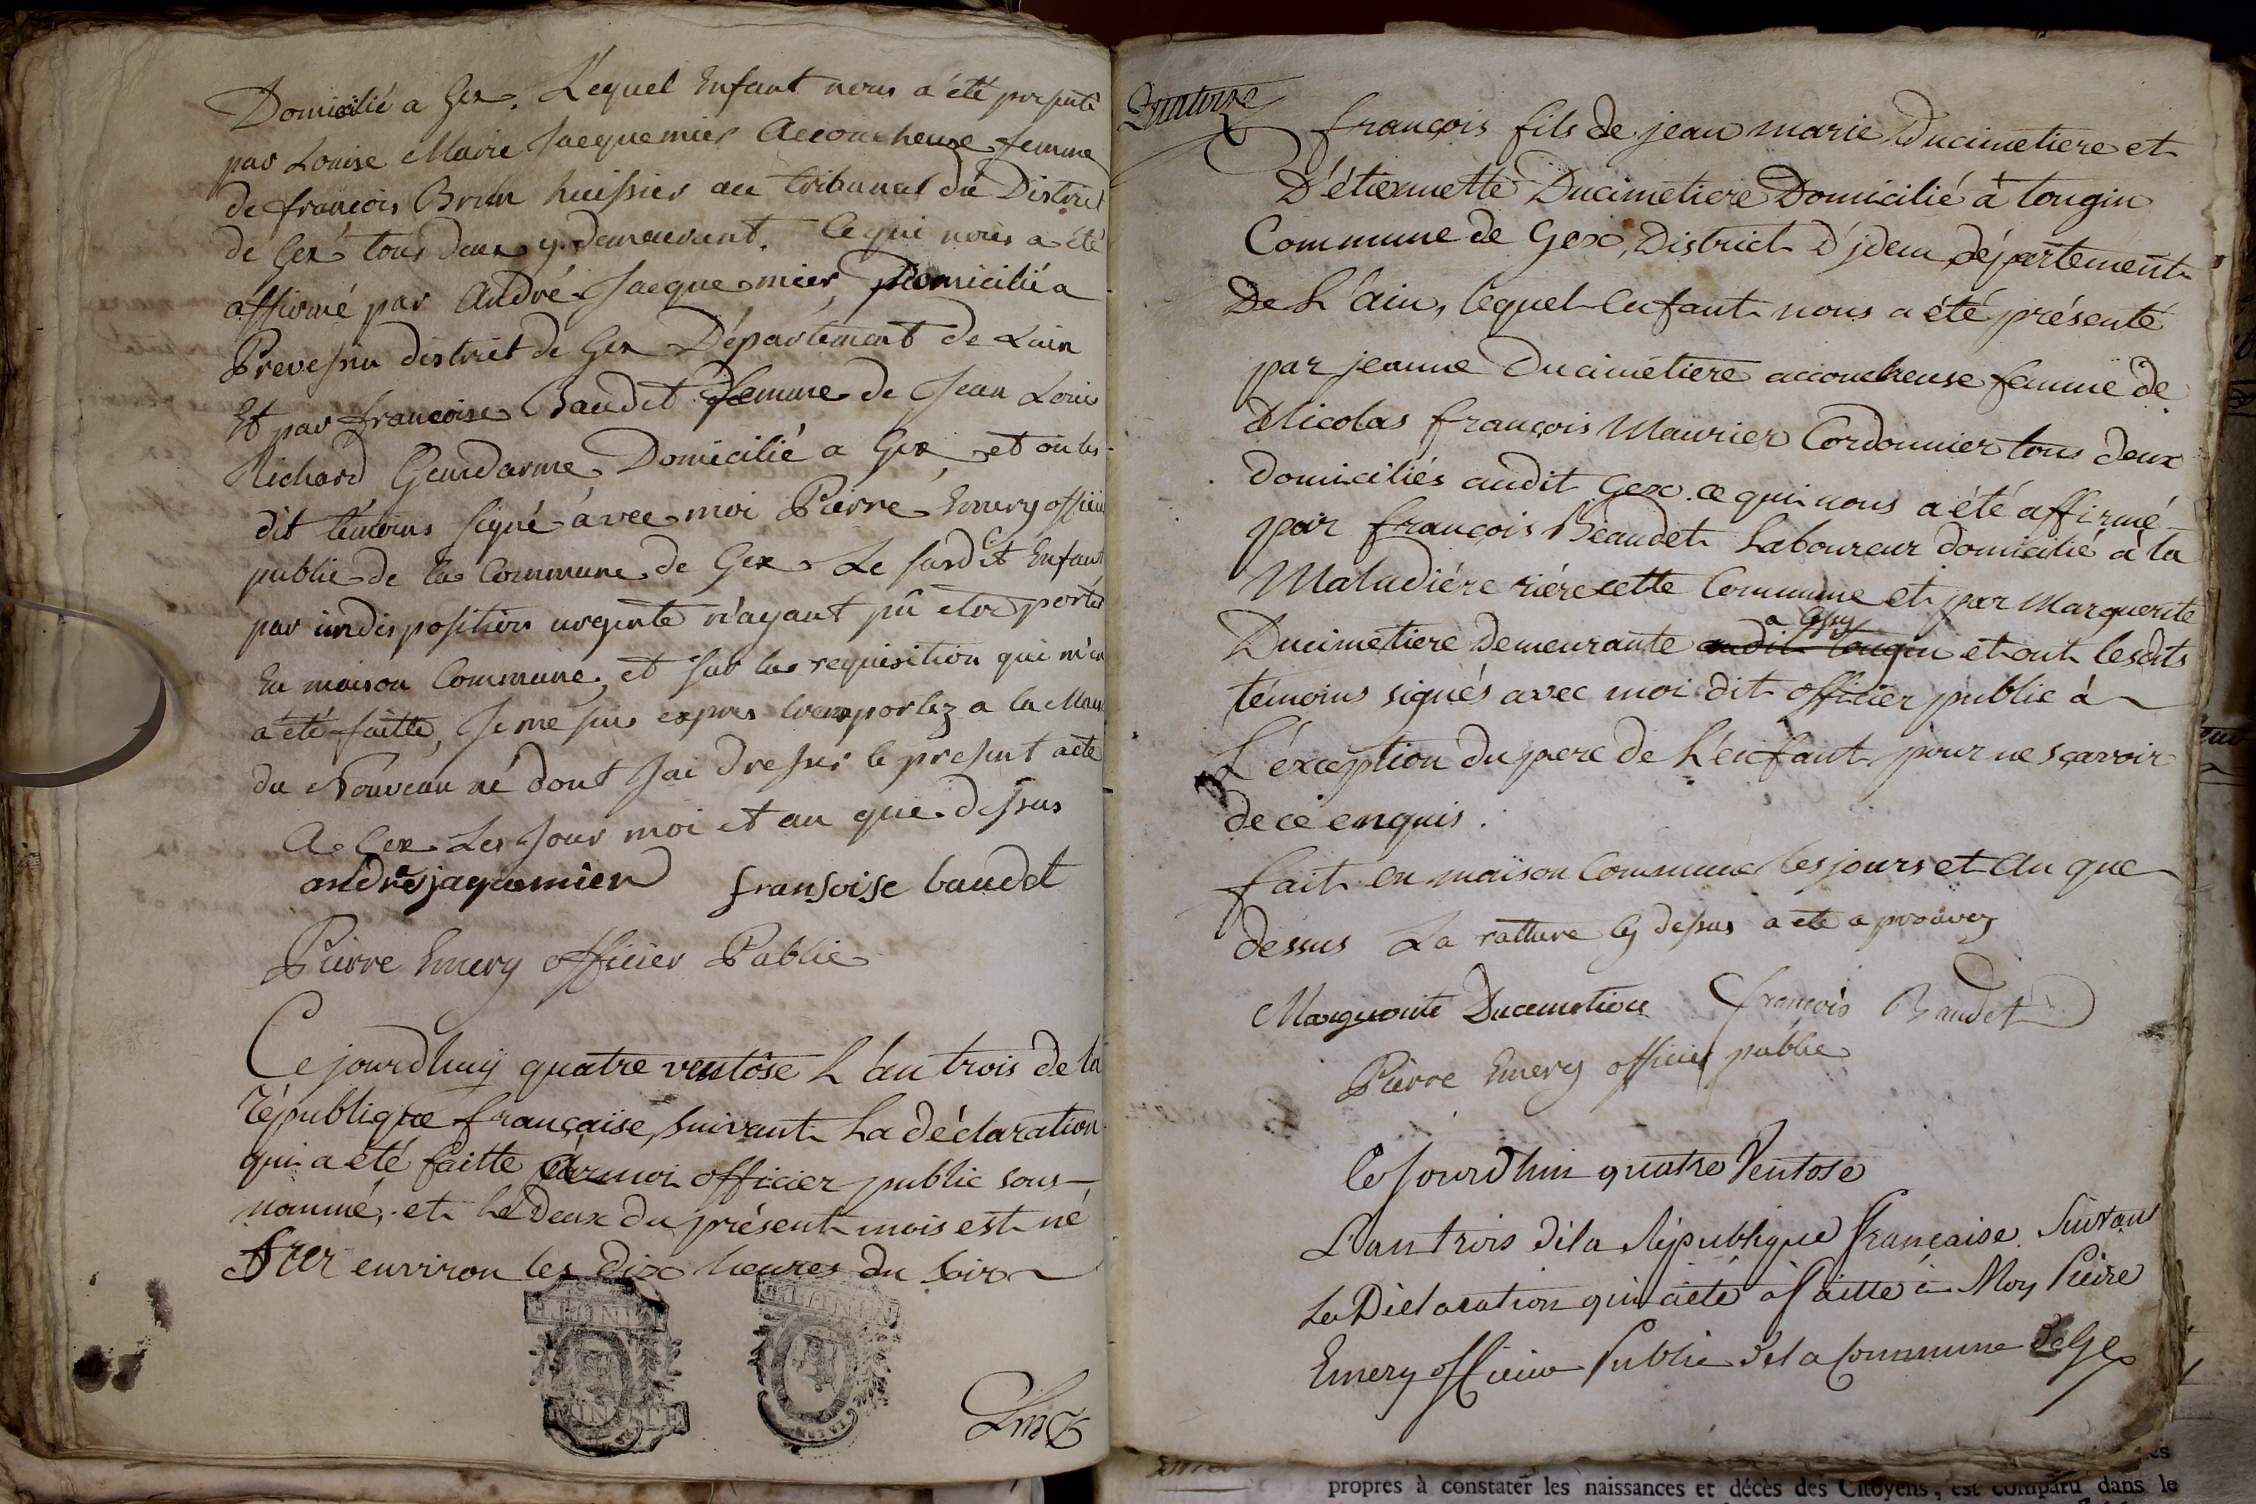 Domicilié a Gex. Lequel Enfant nous a été presenté
par Louise Marie Jacquemier Accoucheuse femme
de françois Brun huissier au tribunal du District
de Gex tous deux y demeurant. Ce qui nous a été
affirmé par André Jacquemier, Domicilié a
Prevessin district de Gex Département de Lain
Et par francoise Baudet femme de Jean Louis
Richard Gendarme, Domicilié a Gex, et on les
dit témoins signé avec moi Pierre Emery officier
public de la Commune de Gex. Le susdit Enfant
par indisposition urgente n'ayant pû etre porté
En maison Commune, et sur la requisition qui m'en
a été faitte, Je me suis expres transportez a la Maison
du Nouveau né dont Jai dressez le present acte
A Gex Les Jour moi et an que dessus
andré jaquemier fransoise baudet
Pierre Emery officier Public
Ce jourdhuy quatre ventôse L'an trois de la
république française, suivant La déclaration
qui a été faitte à moi officier public sous
nommé, et le deux du présent mois est né
hier environ les dix heures du soir
MINUTE
Quatorze
françois fils de jean marie Ducimetiere et
D'étiennette Ducimetiere Domicilié à tougin
Commune de Gex, District d'jdem département
De L'ain, lequel Enfant nous a été présenté
par jeanne Ducimétiere accoucheuse femme de
Nicolas françois Maurier Cordonnier tous deux
domiciliés audit Gex. ce qui nous a été affirmé
par françois Beaudet Laboureur domicilié à la
Maladiére riére cette Commune et par Marguerite
a Gex
Ducimetiere demeurante audit tougin et ont lesdits
témoins signés avec moi dit officier public à
L'éxception du pere de L'enfant pour ne sçavoir
de ce enquis.
fait en maison Commune les jours et an que
dessus La ratture cy desus a ete aprouvez
Marguerite Ducemetiere françois Baudet
Pierre Emery officier public
Ce Jourdhui quatre Ventose
L'an trois de la République française. Suivant
La Déclaration qui a été faitte à Moy Pierre
Emery officier Public de la Commune de Gex
propres à constater les naissances et décès des Citoyens, est comparu dans le